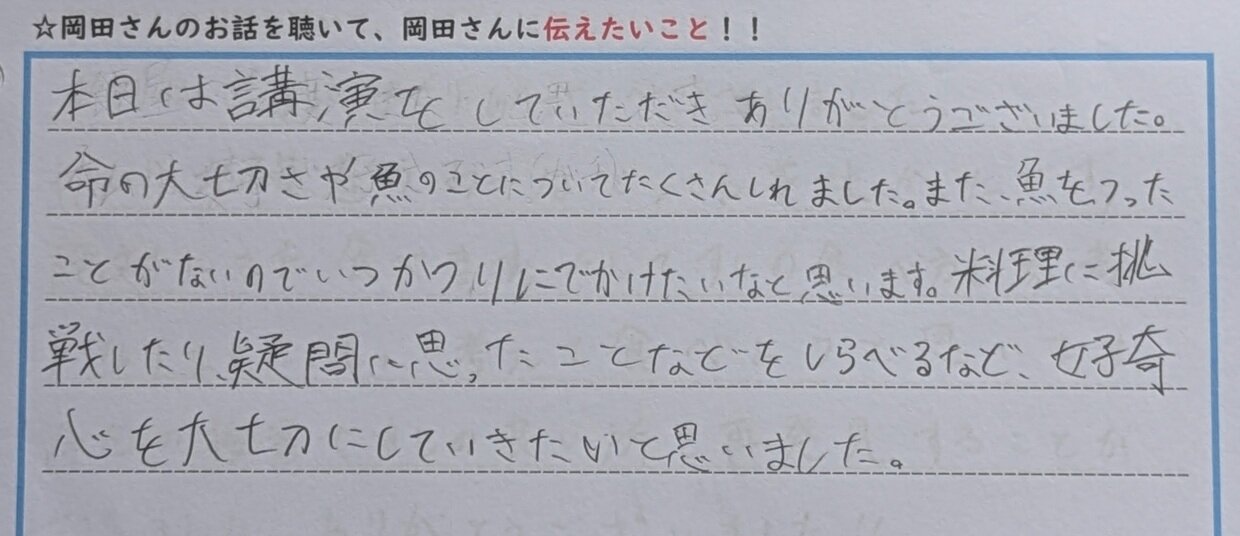 ☆岡田さんのお話を聴いて、岡田さんに伝えたいこと！！
本日は講演をしていただきありがとうございました。
命の大切さや魚のことについてたくさんしれました。また、魚をつった
ことがないのでいつかつりにでかけたいなと思います。料理に挑
戦したり、疑問に思ったことなどをしらべるなど、好奇
心を大切にしていきたいと思いました。